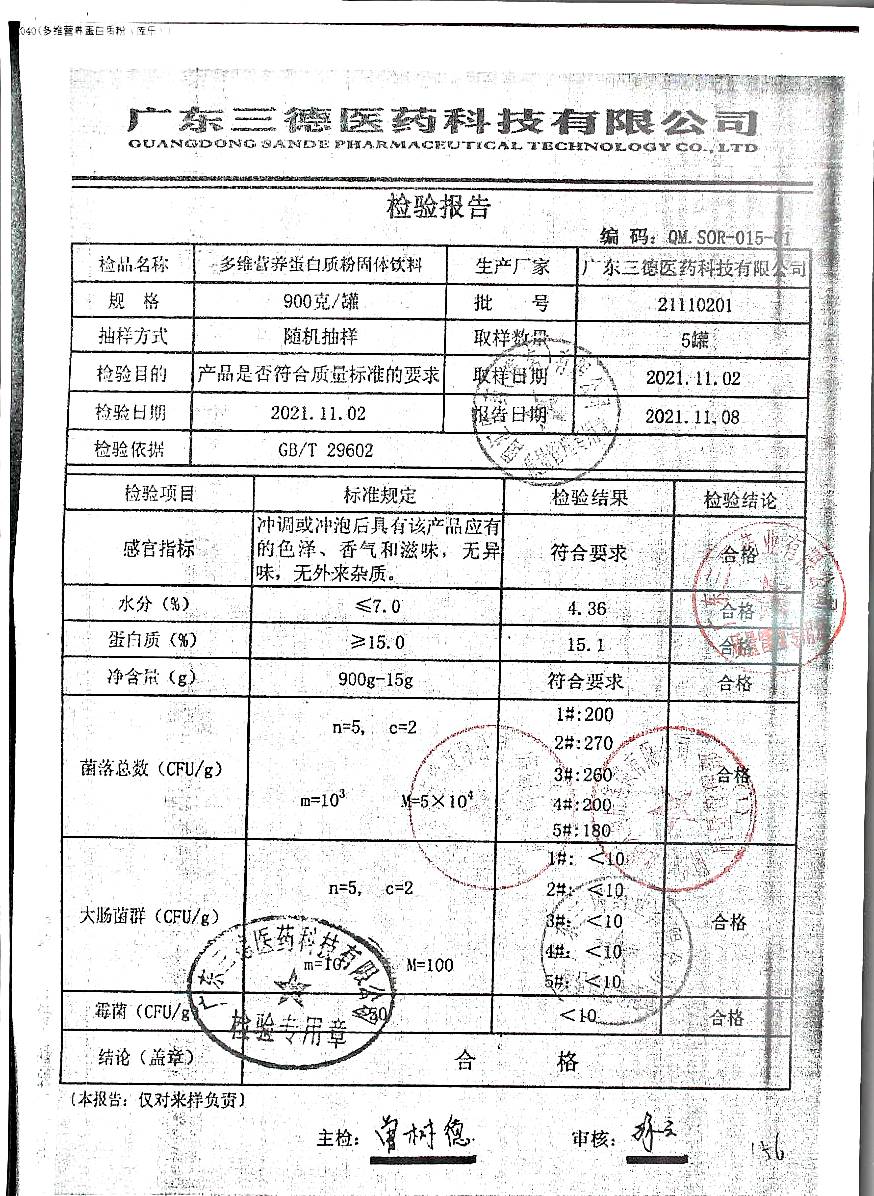 040(多维营养蛋白质粉（
广东三德医药科技有限公司
GUANGDONG SANDE PHARMACEUTICAL TECHNOLOGY CO.,LTD
检验报告
编 码：QM.SOR-015-01
检品名称 多维营养蛋白质粉固体饮料 生产厂家 广东三德医药科技有限公司
规 格 900克/罐 批 号 21110201
抽样方式 随机抽样 取样数量 5罐
检验目的 产品是否符合质量标准的要求 取样日期 2021.11.02
检验日期 2021.11.02 报告日期 2021.11.08
检验依据 GB/T 29602
检验项目 标准规定 检验结果 检验结论
感官指标 冲调或冲泡后具有该产品应有 符合要求 合格
的色泽、香气和滋味，无异
味，无外来杂质。
水分（%） ≤7.0 4.36 合格
蛋白质（%） ≥15.0 15.1 合格
净含量（g） 900g-15g 符合要求 合格
菌落总数（CFU/g） n=5, c=2 1#:200 合格
2#:270
3#:260
m=10³ M=5×10⁴ 4#:200
5#:180
大肠菌群（CFU/g） n=5, c=2 1#: ＜10 合格
2#: ＜10
3#: ＜10
m=10 M=100 4#: ＜10
5#: ＜10
霉菌（CFU/g） ≤50 ＜10 合格
结论（盖章） 合 格
广东三德医药科技有限公司
检验专用章
（本报告：仅对来样负责）
主检：曾树德 审核：
156